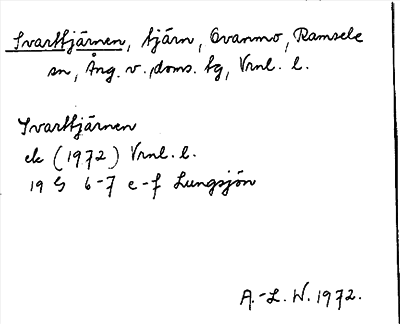 Svarttjärnen, tjärn, Ovanmo, Ramsele
sn, Ång. v. doms. tg, Vrnl. l.
Svarttjärnen
ek (1972) Vrnl. l.
19 G 6-7 e-f Lungsjön
A.-L. W. 1972.